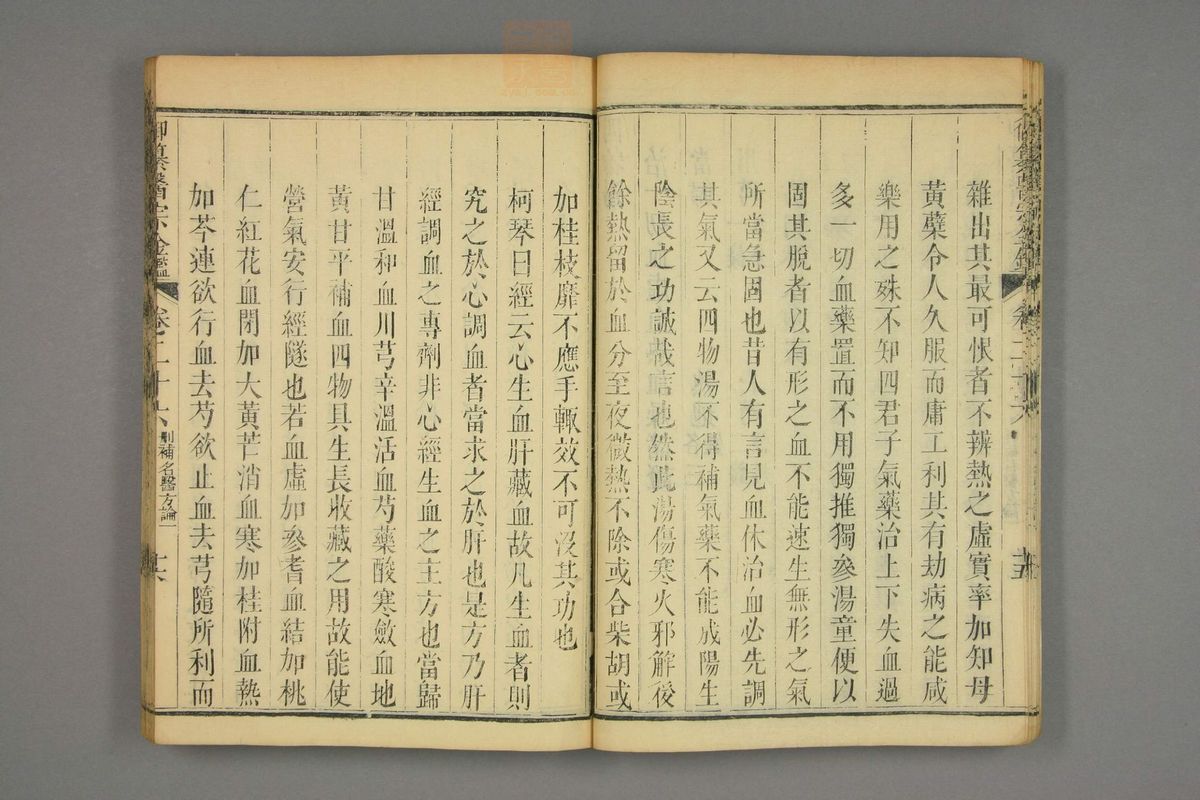 雜出其最可恨者不辨熱之虛實率加知母
黃蘗令人久服而庸工利其有劫病之能咸
樂用之殊不知四君子氣藥治上下失血過
多一切血藥置而不用獨推獨參湯童便以
固其脫者以有形之血不能速生無形之氣
所當急固也昔人有言見血休治血必先調
其氣又云四物湯不得補氣藥不能成陽生
陰長之功誠哉言也然此湯傷寒火邪解後
餘熱留於血分至夜微熱不除或合柴胡或
加桂枝靡不應手輒效不可沒其功也
柯琴曰經云心生血肝藏血故凡生血者則
究之於心調血者當求之於肝也是方乃肝
經調血之專劑非心經生血之主方也當歸
甘溫和血川芎辛溫活血芍藥酸寒斂血地
黃甘平補血四物具生長收藏之用故能使
營氣安行經隧也若血虛加參耆血結加桃
仁紅花血閉加大黃芒消血寒加桂附血熱
加芩連欲行血去芍欲止血去芎隨所利而
御纂醫宗金鑑 卷二十六 刪補名醫方論一 十六